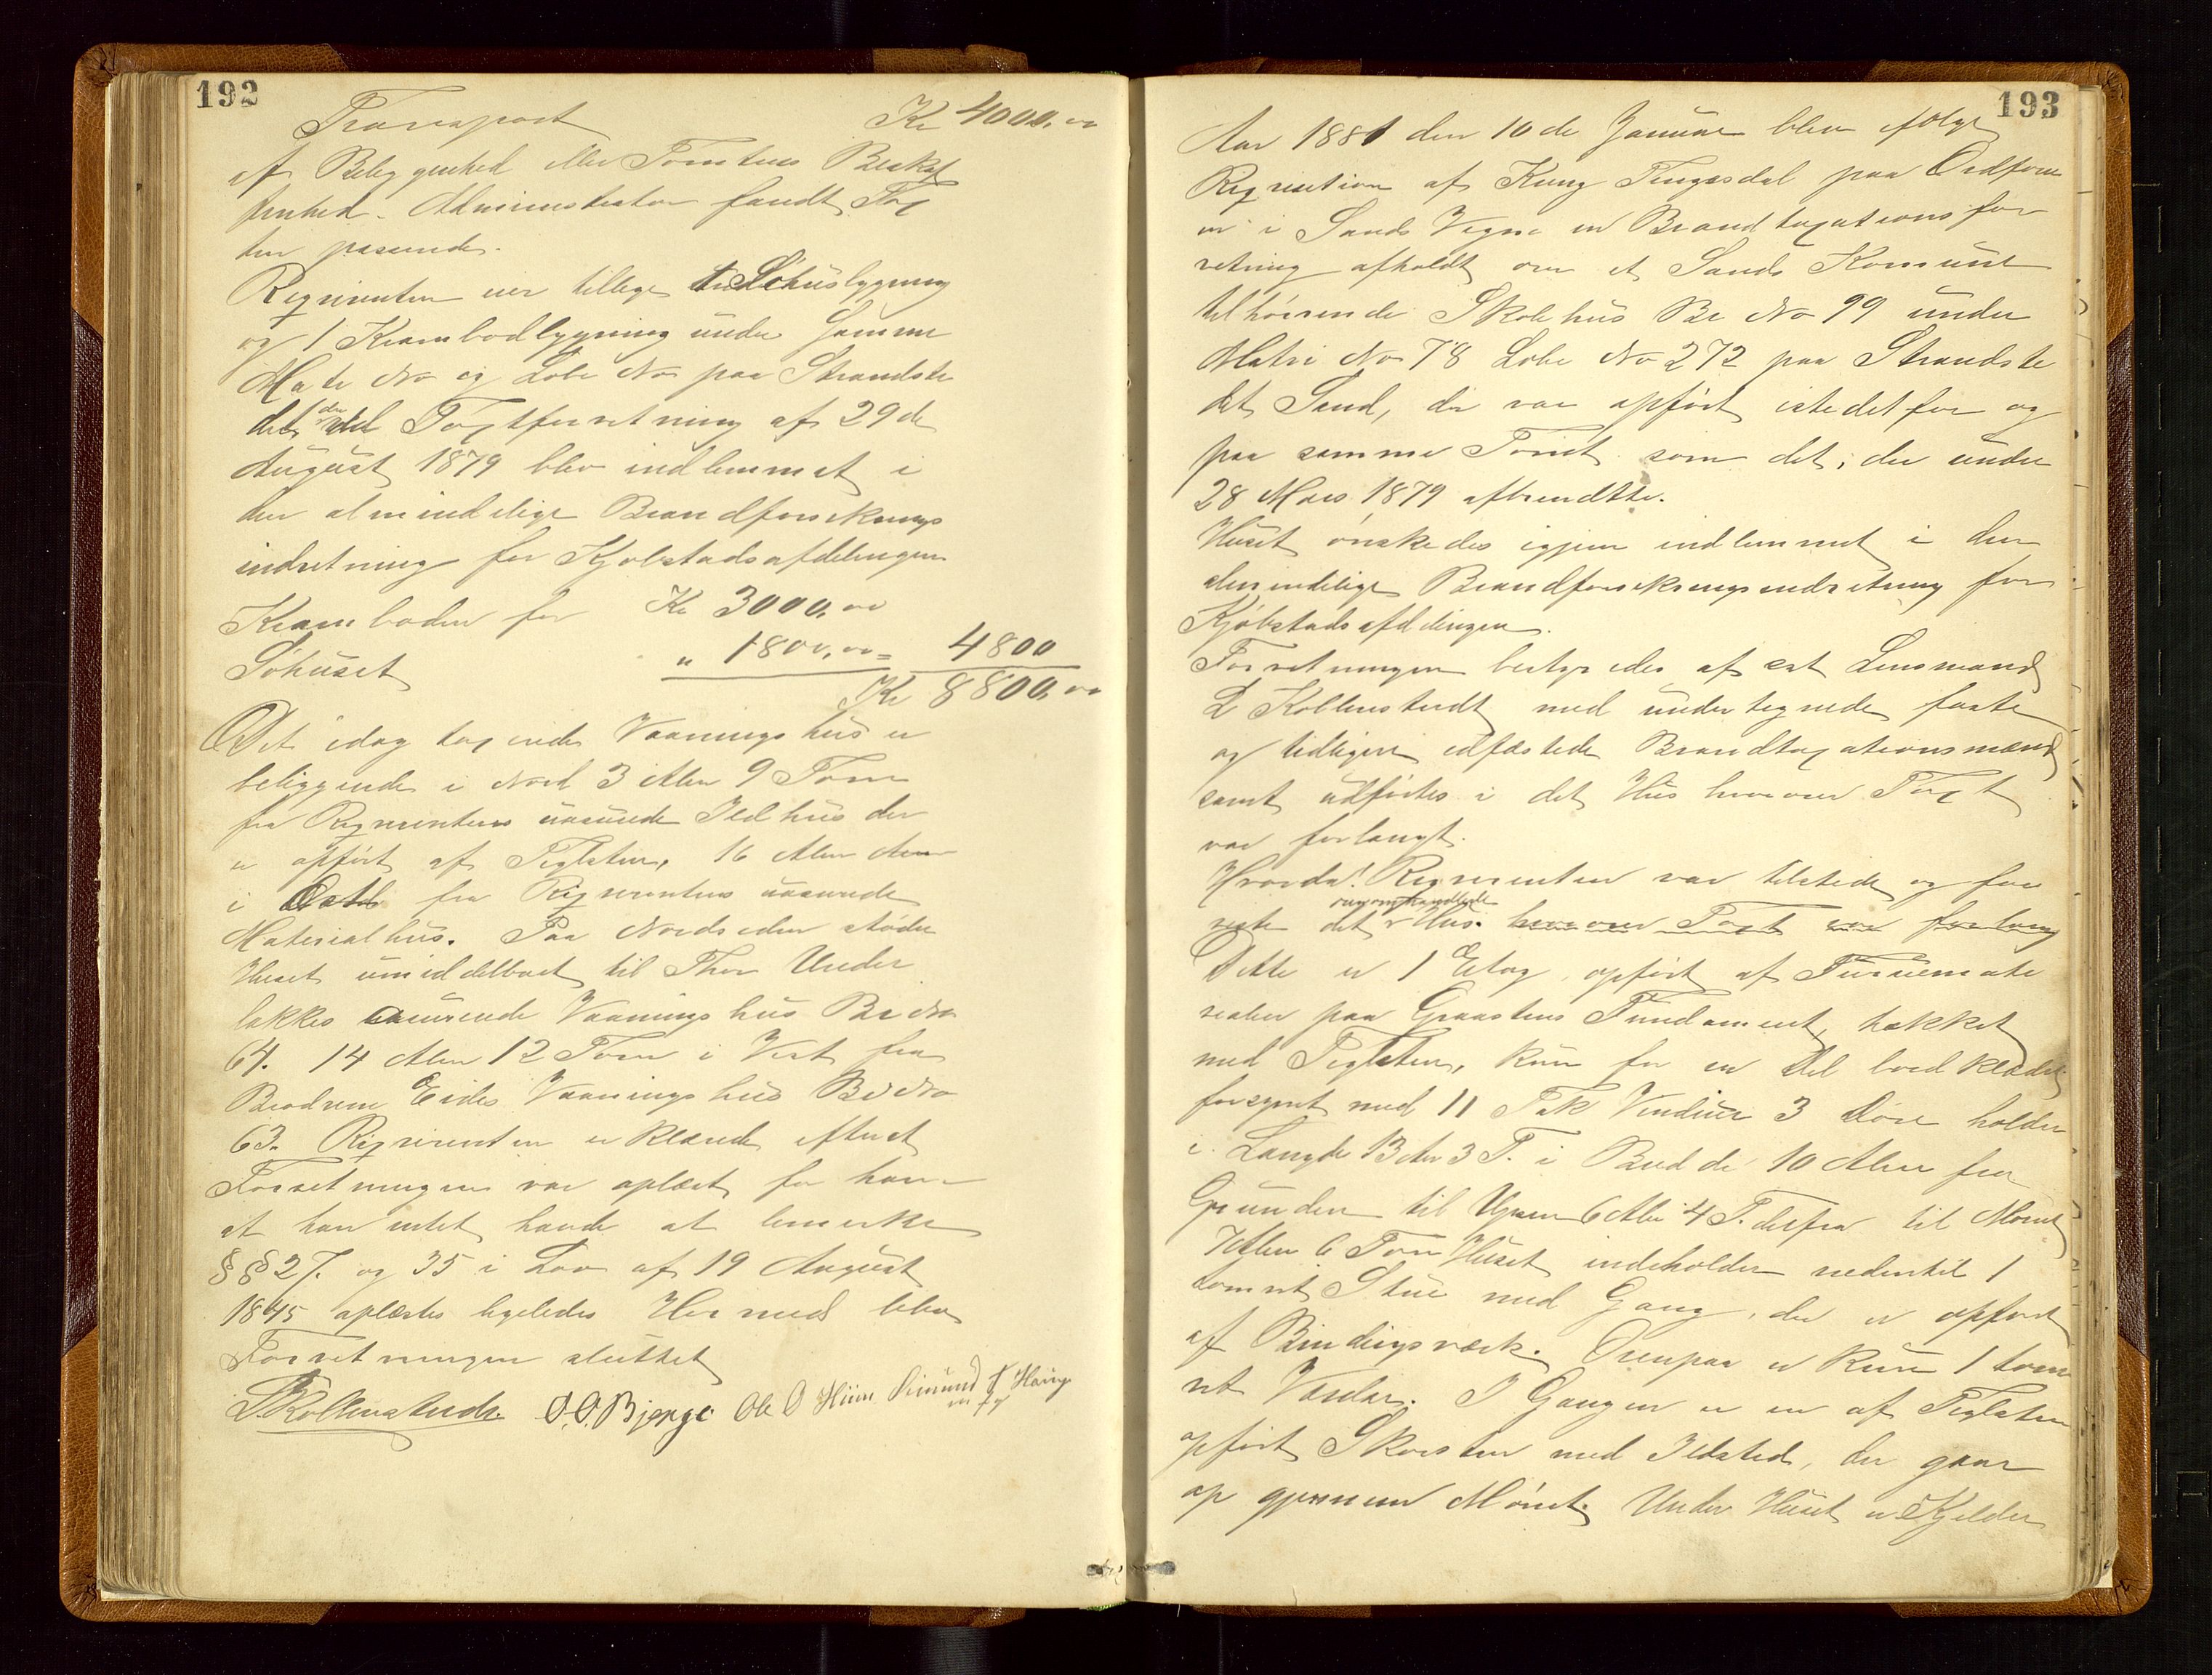 192
Transport Kr 4000,00
af Beliggenhed eller Tomtens Beskaf
fenhed. Administrator fandt Tax
ten passende.
Requirenten eier tillige 1 Söhusbygning
og 1 Krambodbygning under samme
Matr No og Löbe No paa Strandste
det, der ved Taxtforretning af 29de
August 1879 blev indlemmet i
den almindelige Brandforsikrings
indretning for Kjöbstadsafdelingen
Kramboden for Kr 3000,00
Söhuset " 1800,00 = 4800
Kr 8800,00
Det idag taxerede Vaaningshus er
beliggende i Nord 3 Alen 9 Tom
fra Requirentens uassurede Ildhus der
er opfört af Teglsten, 16 Alen
i Öst fra Requirentens uassurede
Materialhus. Paa Nordsiden stöder
Huset umiddelbart til Thor Under
bakkes assurerede Vaaningshus Br No
64. 14 Alen 12 Tom i Vest fra
Brödrene Eides Vaaningshus Br No
63. Requirenten erklærede efterat
Forretningen var oplæst for ham
at han intet havde at bemerke
§§ 27. og 35 i Lov af 19 August
1845 oplæstes ligeledes Hermed blev
Forretningen sluttet
L Kolbenstvedt. O. O. Bjerge Ole O Hiim Simund Höiing
m f p
193
Aar 1881 den 10de Januar blev efter
Requisition af Knug Tingesdal paa Ordföre
ren i Sands Vegne en Brandtaxationsfor
retning afholdt over et Sands Komune
tilhörende Skolehus Br No 99 under
Matr No 78 Löbe No 272 paa Strandste
det Sand, der var opfört istedetfor og
paa samme Tomt som det, der under
28 Mars 1879 afbrendtte.
Huset önskedes igjen indlemmet i den
almindelige Brandforsikringsindretning for
Kjöbstadsafdelingen.
Forretningen bestyredes af cst Lensmand
L Kolbenstvedt med undertegnede faste
og tidligere edfæstede Brandtaxationsmænd
samt udförtes i det Hus hvorover Taxt
var forlangt.
Hvorda! Requirenten var tilstede og fore
viste det omhandlede Hus. hvorover Taxt var forlang
Dette er 1 Etag, opfört af Furuemate
rialier paa Graastens Fundament, tækket
med Teglsten, kun for en Del bordklædt
forsynet med 11 Fak Vinduer 3 Döre holder
i Længde 13 Alen 3 T. i Bredde 10 Alen fra
Grunden til Upsen 6 Alen 4 T. derfra til Mönet
7 Alen 6 Tom Huset indeholder nedentil 1
tömret Stue med Gang, der er opfört
af Bindingsværk. Ovenpaa er kun 1 töm
ret Værelse. I Gangen er en af Teglsten
opfört Skorsten med Ildsted, der gaar
op gjennem Mönet. Under Huset er Kjelder